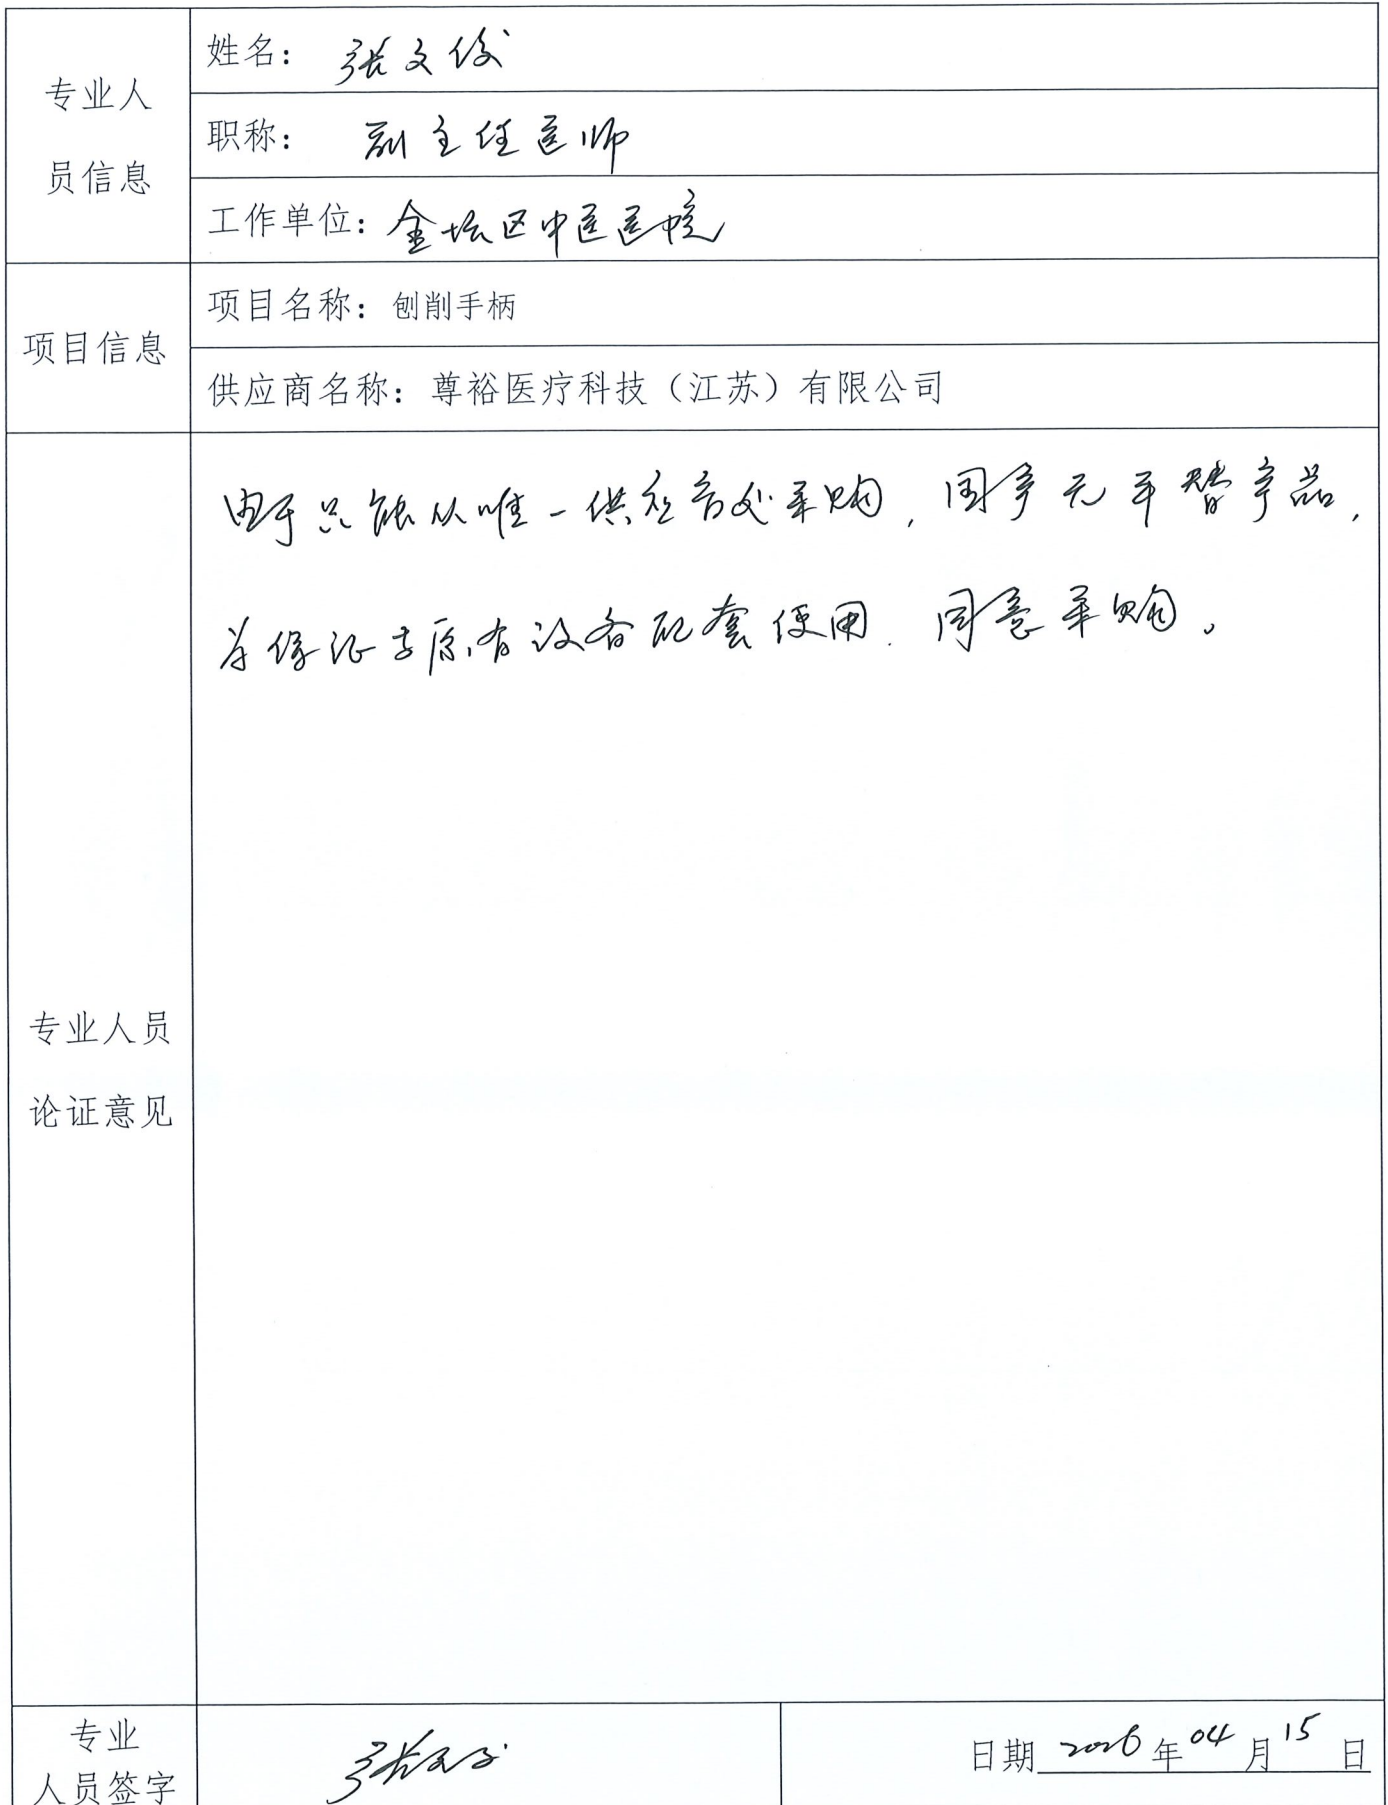 专业人
员信息
姓名：张文俊
职称：副主任医师
工作单位：金坛区中医医院
项目信息
项目名称：刨削手柄
供应商名称：尊裕医疗科技（江苏）有限公司
专业人员
论证意见
由于只能从唯一供应商处采购，国产无平替产品，
为保证与原有设备配套使用.同意采购。
专业
人员签字
张文俊
日期2026年04月15日